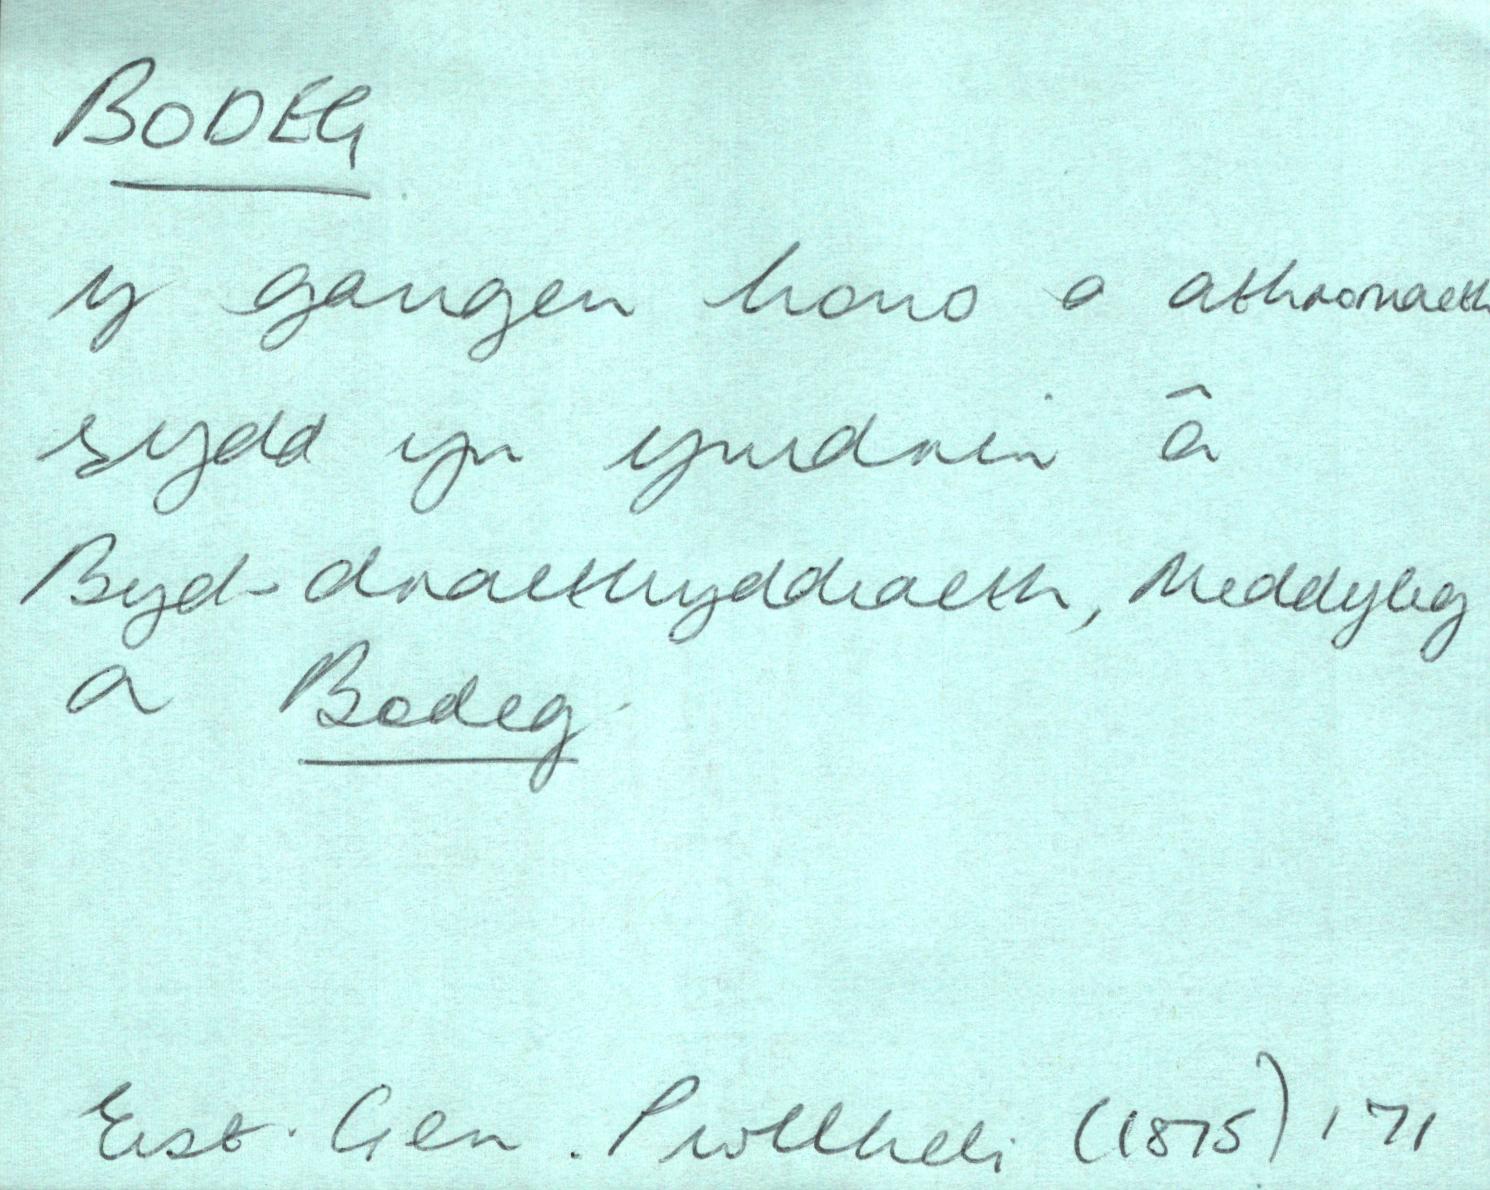 BODEG
y gangen hono o athronaeth
sydd yn ymdrin â
Byd-draethyddiaeth, Meddyleg
a Bodeg
Eist. Gen. Pwllheli (1875) 171